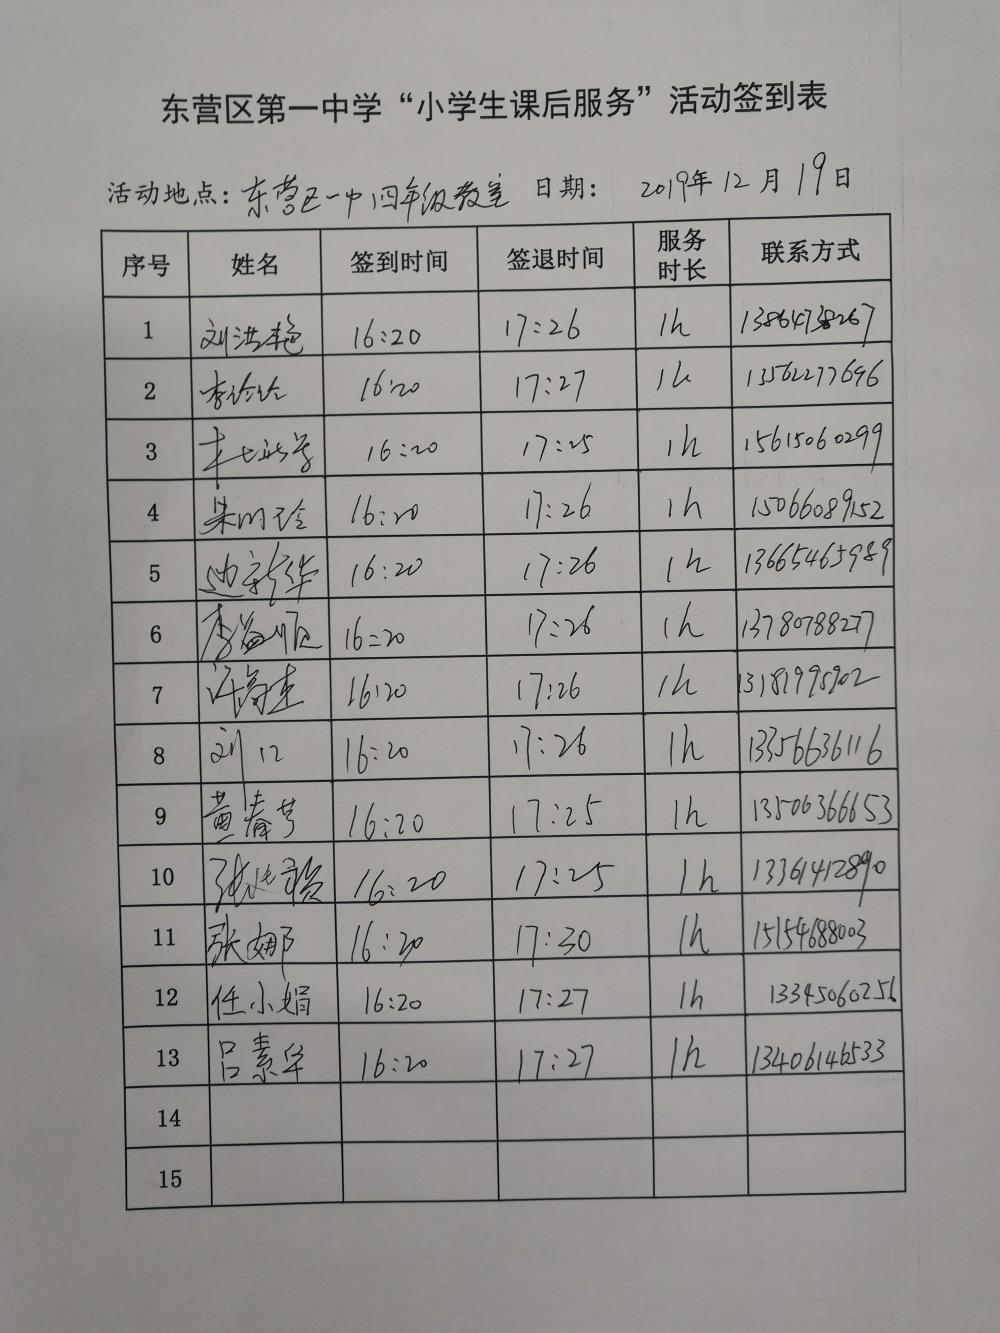 东营区第一中学“小学生课后服务”活动签到表
活动地点：东营区一中四年级教室 日期： 2019年12月19日
序号 姓名 签到时间 签退时间 服务时长 联系方式
1 刘洪艳 16:20 17:26 1h 13864738267
2 李玲玲 16:20 17:27 1h 13562277696
3 16:20 17:25 1h 15615060299
4 16:20 17:26 1h 15066089152
5 新华 16:20 17:26 1h 13665465989
6 李益顺 16:20 17:26 1h 13780788277
7 16:20 17:26 1h 13181995902
8 刘 16:20 17:26 1h 13356636116
9 黄春芳 16:20 17:25 1h 13506366653
10 张 16:20 17:25 1h 13361412890
11 张娜 16:20 17:30 1h 15154688003
12 任小娟 16:20 17:27 1h 13345060256
13 吕素华 16:20 17:27 1h 13406146533
14
15